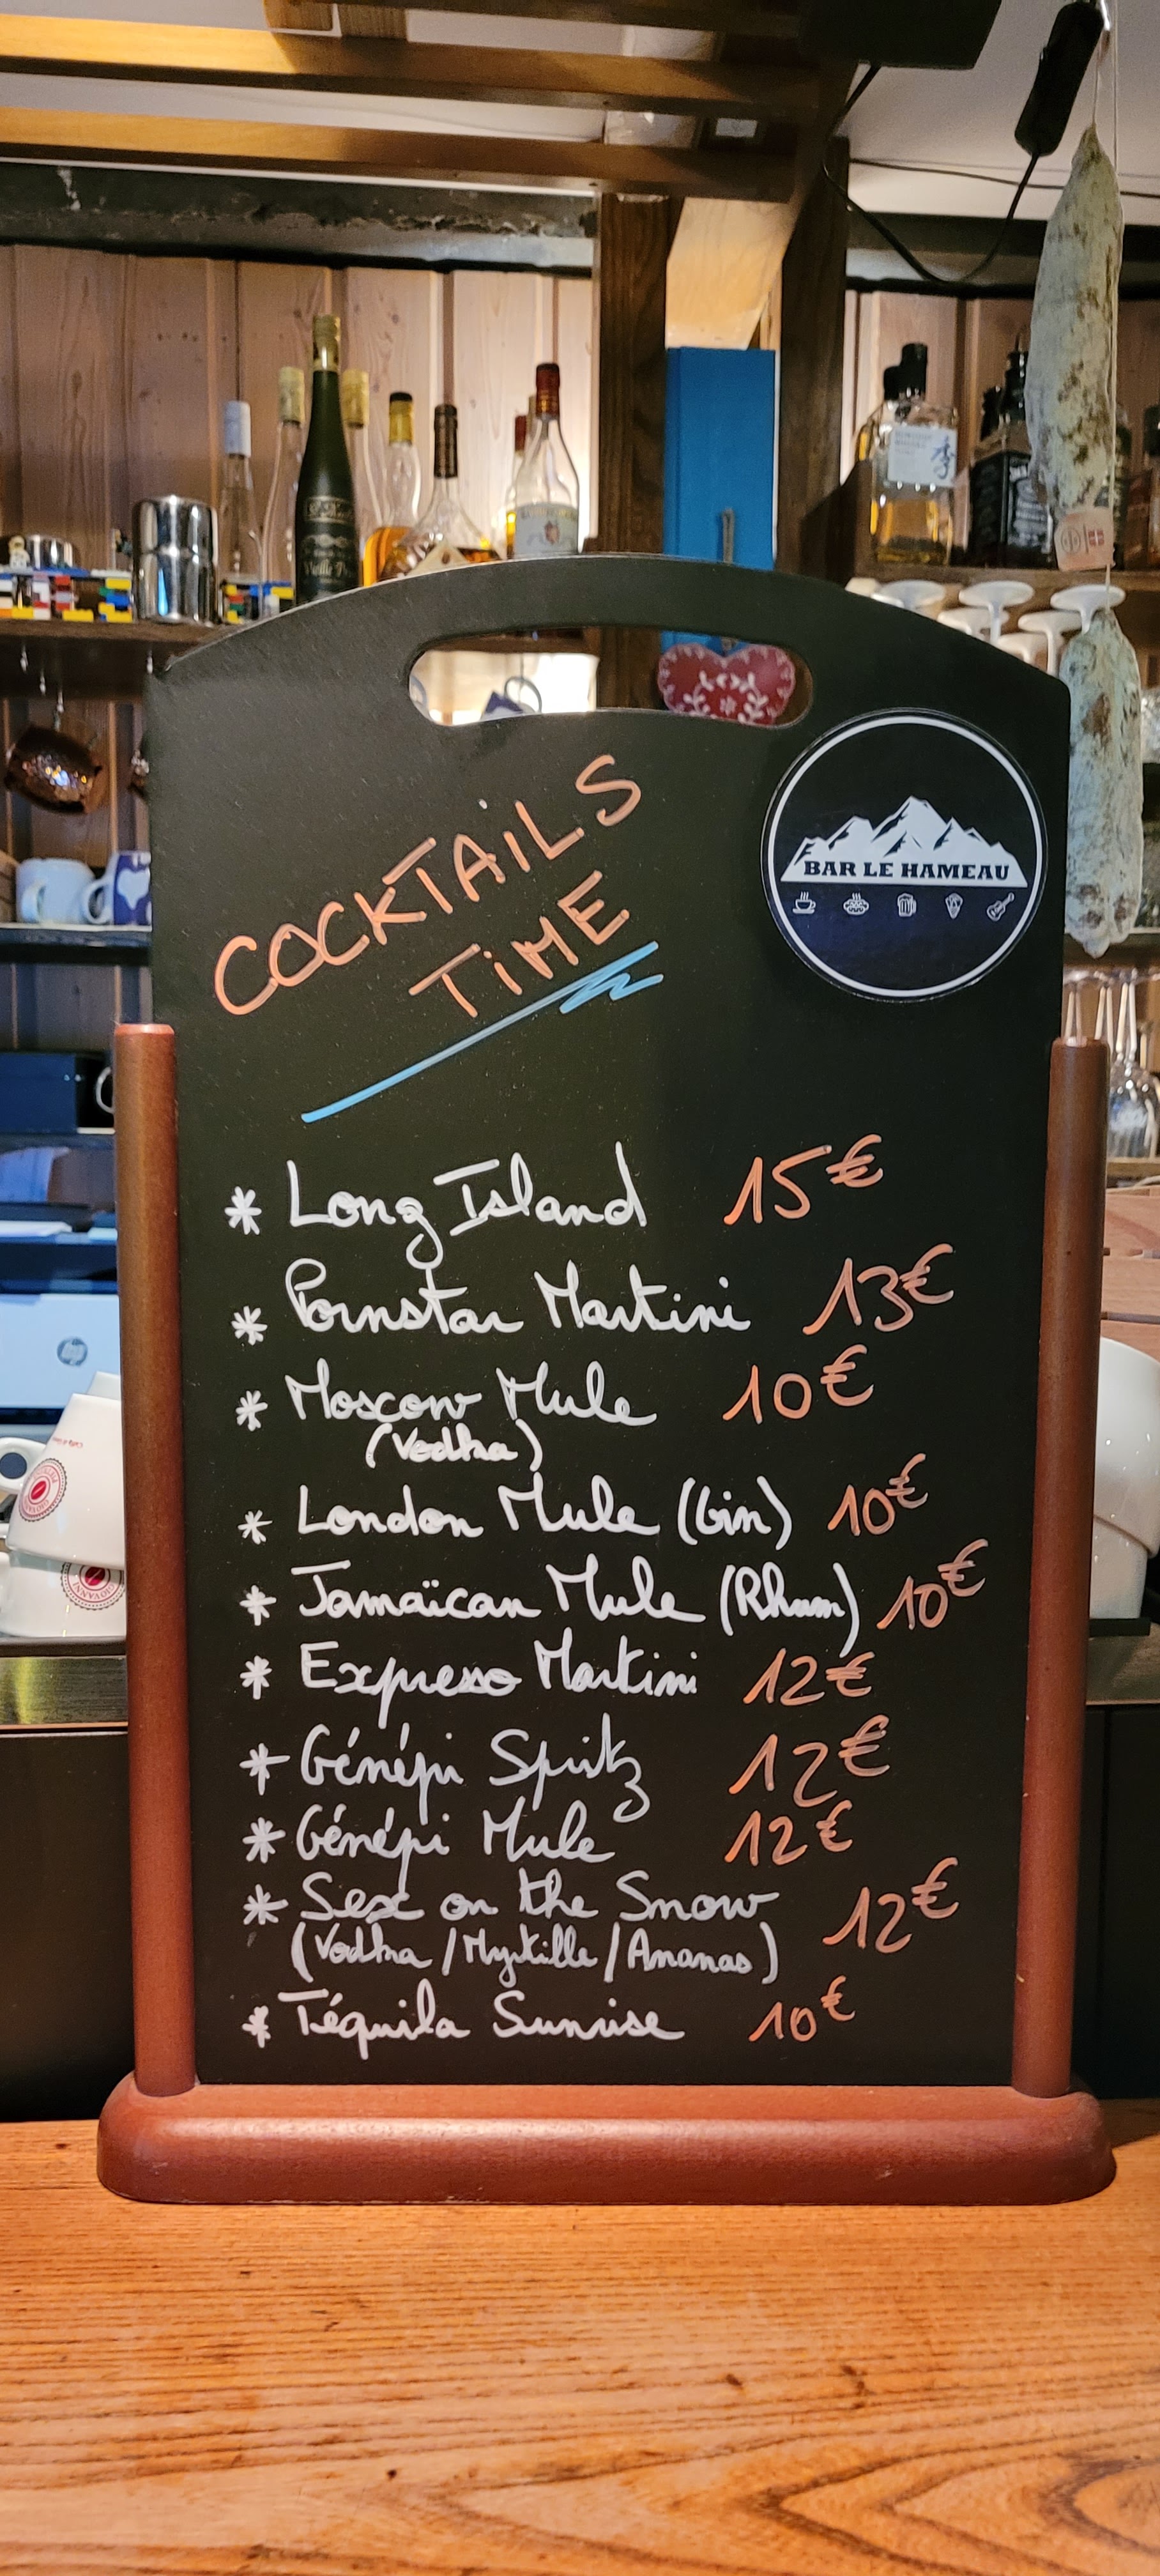 BAR LE HAMEAU
COCKTAILS
TIME
* Long Island 15€
* Pornstar Martini 13€
* Moscow Mule 10€
(Vodka)
* London Mule (Gin) 10€
* Jamaïcan Mule (Rhum) 10€
* Expresso Martini 12€
* Génépi Spritz 12€
* Génépi Mule 12€
* Sex on the Snow 12€
(Vodka / Myrtille / Ananas)
* Téquila Sunrise 10€
hp
GIOVANNI